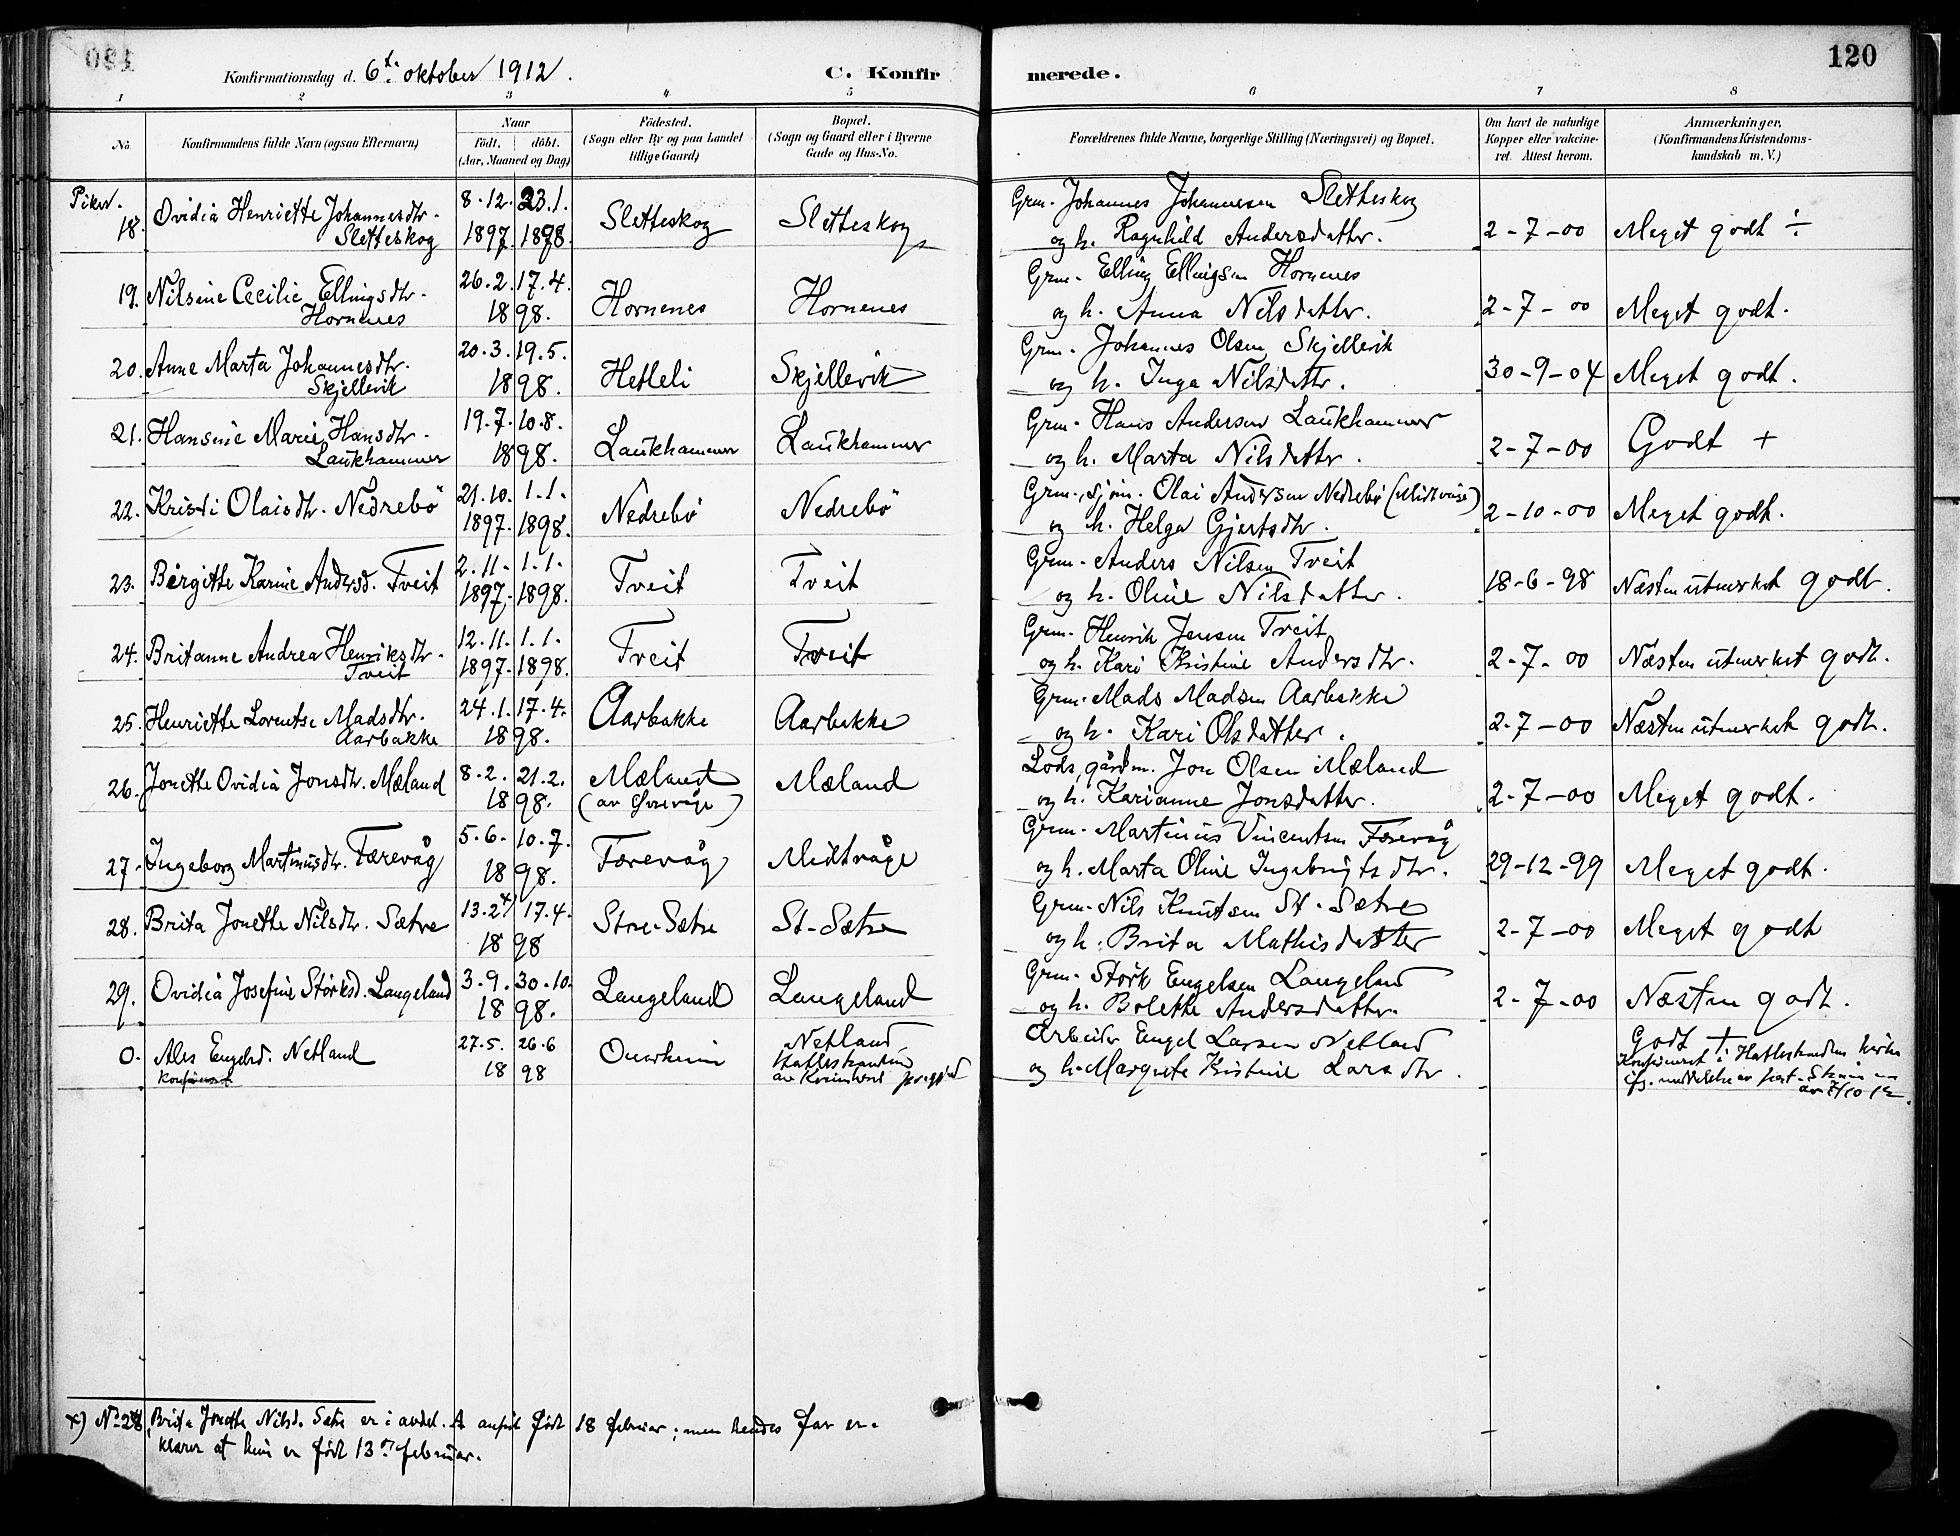 Konfirmationsdag d. 6te oktober 1912. C. Konfirmerede. 120
1 2 3 4 5 6 7 8
No. Konfirmandens fulde Navn (ogsaa Efternavn) Naar födt. döbt. (Aar, Maaned og Dag) Födested. (Sogn eller By og paa Landet tillige Gaard) Bopæl. (Sogn og Gaard eller i Byerne Gade og Hus-No. Forældrenes fulde Navne, borgerlige Stilling (Næringsvei) og Bopæl. Om havt de naturlige Kopper eller vakcineret. Attest herom. Anmærkninger, (Konfirmandens Kristendomskundskab m. V.)
Piker.
18. Ovidia Henriette Johannesdtr. 8.12. 23.1. Sletteskog Sletteskog Grm. Johannes Johannessen Sletteskog
Sletteskog 1897. 1898. og h. Ragnhild Andersdatter. 2-7-00 Meget godt ÷
19. Nilsine Cecilie Ellingsdtr. 26.2. 17.4. Hornenes Hornenes Grm. Elling Ellingsen Hornenes
Hornenes 1898. og h. Anna Nilsdatter. 2-7-00 Meget godt.
20. Anne Marta Johannesdtr. 20.3. 19.5. Hetleli Skjellevik Grm. Johannes Olsen Skjellevik
Skjellevik 1898. og h. Inga Nilsdattr. 30-9-04 Meget godt.
21. Hansine Marie Hansdtr. 19.7. 10.8. Laukhammer Laukhammer Grm. Hans Andersen Laukhammer
Laukhammer 1898. og h. Marta Nilsdatter. 2-7-00 Godt +
22. Kristi Olaisdtr. Nedrebö 21.10. 1.1. Nedrebö Nedrebö Grm., sjöm. Olai Andersen Nedrebö
1897. 1898. og h. Helga Gjertsdtr. 2-10-00 Meget godt.
23. Birgitte Karine Andersd. Tveit 2.11. 1.1. Tveit Tveit Grm. Anders Nilsen Tveit
1897. 1898. og h. Oline Nilsdatter. 18-6-98 Næsten utmerket godt.
24. Britanne Andrea Henriksdtr. 12.11. 1.1. Tveit Tveit Grm. Henrik Jensen Tveit
Tveit 1897. 1898. og h. Kari Kristine Andersdtr. 2-7-00 Næsten utmerket godt.
25. Henriette Lorentse Madsdtr. 24.1. 17.4. Aarbakke Aarbakke Grm. Mads Madsen Aarbakke
Aarbakke 1898. og h. Kari Olsdatter. 2-7-00 Næsten utmerket godt.
26. Jonette Ovidia Jonsdtr. Mæland 8.2. 21.2. Mæland Mæland Lods, gårdm. Jon Olsen Mæland
1898. og h. Karianne Jonsdatter. 2-7-00 Meget godt.
27. Ingeborg Martinusdtr. Færevåg 5.6. 10.7. Færevåg Midtvåge Grm. Martinus Vincentsen Færevåg
1898. og h. Marta Oline Ingebrigtsdtr. 29-12-99 Meget godt.
28. Brita Jonette Nilsdtr. Sætre 13.2 x) 17.4. Store-Sætre St-Sætre Grm. Nils Knutsen St. Sætre
1898 og h. Brita Mathisdatter 2-7-00 Meget godt
29. Ovidia Josefine Störksd. Langeland 3.9. 30.10. Langeland Langeland Grm. Störk Engelsen Langeland
1898. og h. Bolette Andersdatter. 2-7-00 Næsten godt.
0. Ales Engelsd. Netland 27.5. 26.6 Onarheim Netland Arbeider Engel Larsen Netland Godt +
konfirmert 1898 Hatlestranden av Kvinherad prestegjeld og h. Margrete Kristine Larsdtr. Konfirmeret i Hatlestrandens kirke
ifg. meddelelse av
av 7/10 12.
x) No 28, Brita Jonette Nilsd. Sætre er i avdel. A anført født 18 februar; men hendes far er-
klærer at hun er født 13de februar.